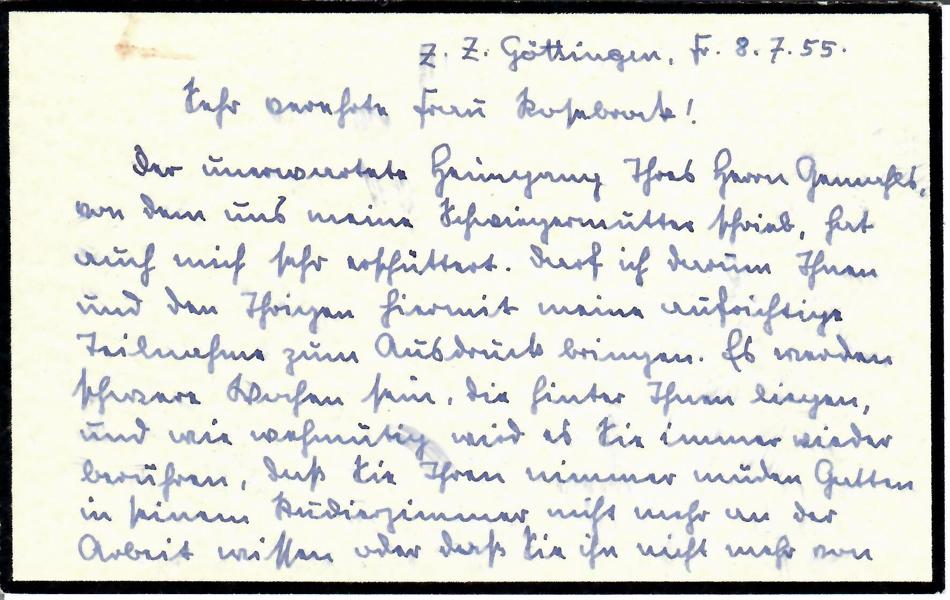 z. Z. Göttingen, Fr. 8.7.55.
Sehr verehrte Frau Rosebrock!
Der unerwartete Heimgang Ihres Herrn Gemahls,
von dem uns meine Schwiegermutter schrieb, hat
auch mich sehr erschüttert. Darf ich darum Ihnen
und den Ihrigen hiermit meine aufrichtige
Teilnahme zum Ausdruck bringen. Es werden
schwere Wochen sein, die hinter Ihnen liegen,
und wie wehmütig wird es Sie immer wieder
berühren, daß Sie Ihren nimmer müden Gatten
in seinem Studierzimmer nicht mehr an der
Arbeit wissen oder daß Sie ihn nicht mehr von